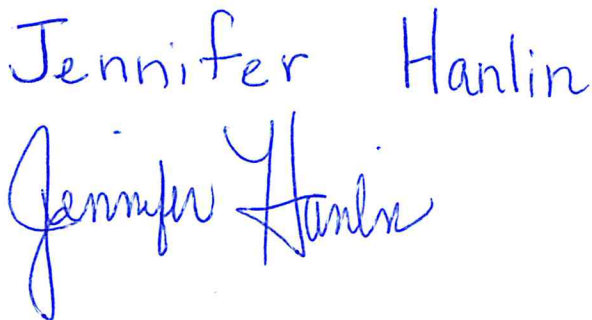 Jennifer Hanlin
Jennifer Hanlin